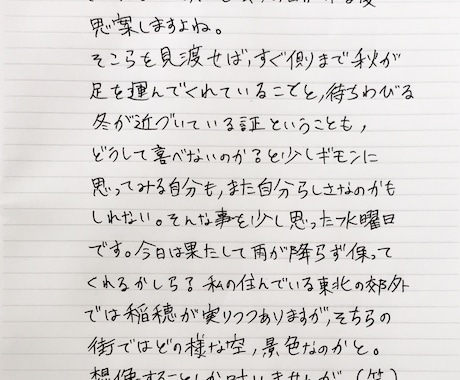 思案しますよね。
そこらを見渡せば、すぐ側まで秋が
足を運んでくれていることと、待ちわびる
冬が近づいている証ということも、
どうして喜べないのかると少しギモンに
思ってみる自分も、また自分らしさなのかも
しれない。そんな事を少し思った水曜日
です。今日は果たして雨が降らず保って
くれるかしら？私の住んでいる東北の郊外
では稲穂が実りつつありますが、そちらの
街ではどの様な空，景色なのかと。
想像することしか叶いませんが（笑）